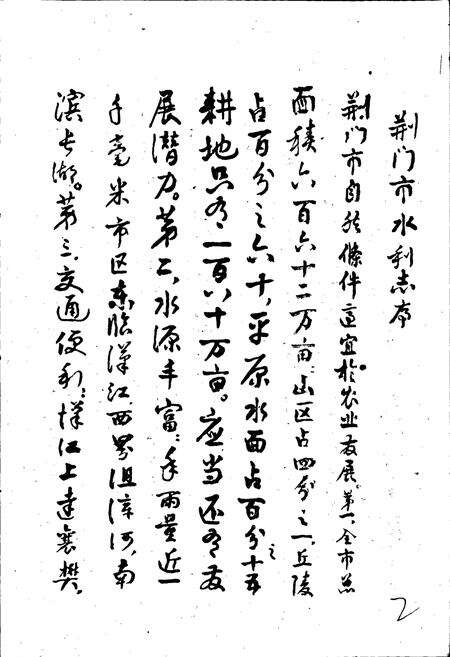 荆门市水利志序
荆门市自然條件适宜於农业发展。第一、全市总
面积六百六十二万亩：山区占四分之一、丘陵
占百分之六十，平原水面占百分之十五
耕地只有一百八十万亩。应当还有发
展潜力。第二，水源丰富：年雨量近一
千毫米市区东临漢江，西界沮漳河，南
滨长湖。第三、交通便利：漢江上达襄樊，
2